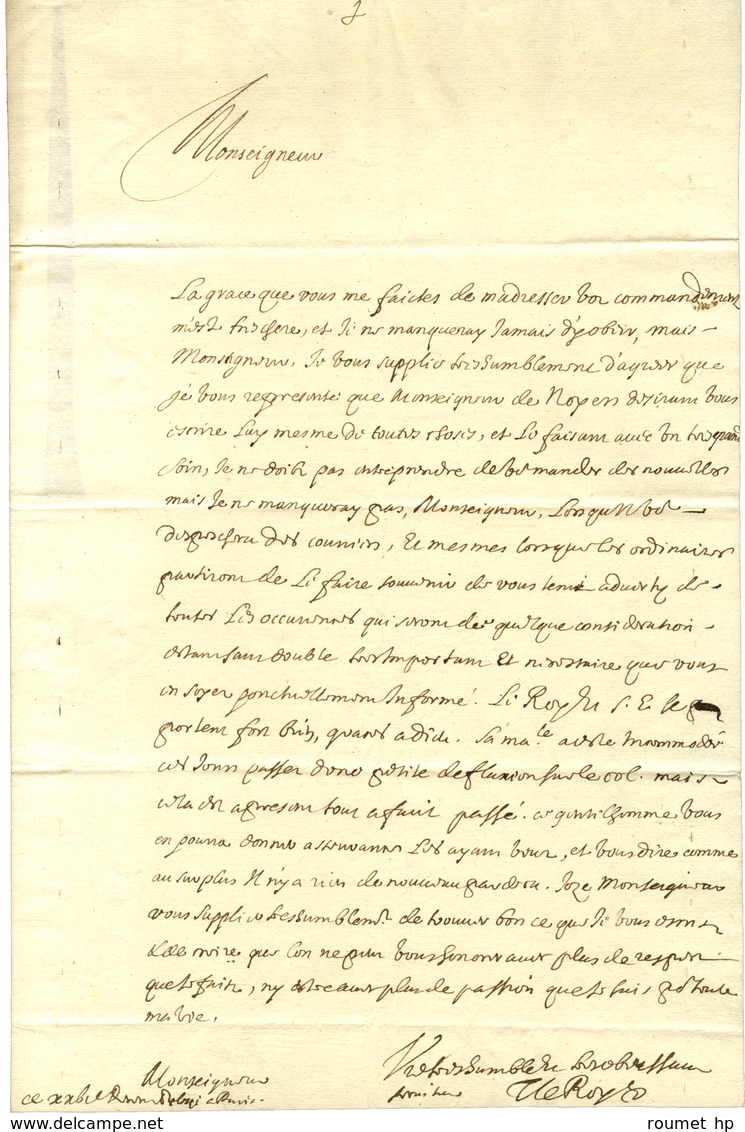 Monseigneur
La grace que vous me faictes de m'adresser voz commandemens
m'est tres chere, et Je ne manqueray Jamais d'y obeir, mais
Monseigneur, Je vous supplie tres humblement d'agreer que
je vous represente que Monseigneur de Noyers desirant vous
escrire luy mesme de toutes choses, et le faisant avec un tres grand
soin, Je ne doibs pas entreprendre de vous mander des nouvelles
mais Je ne manqueray pas, Monseigneur, Lorsqu'il vous
despeschera des couriers, Et mesmes lorsque les ordinaires
partiront de Le faire souvenir de vous tenir adverty de
toutes Les occurences qui seront de quelque consideration
estant sans double tres Important Et necessaire que vous
en soyez ponctuellement Informé. Le Roy Et S. E. se
portent fort bien, graces a dieu. Sa ma.te a esté Incommodée
ces Jours passez d'une petite defluxion sur le col. mais
cela est a present tout a fait passé. ce gentilhomme vous
en pourra donner asseurance Les ayant veuz, et vous dire comme
au surplus Il n'y a rien de nouveau par deca. Joze Monseigneur
vous supplier tres humblem.t de trouver bon ce que Je vous
& de croire que l'on ne peut vous honorer avec plus de respect
que Je faitz, ny estre avec plus de passion que Je suis p toute
ma vie.
Monseigneur
Vre tres humble Et tres obeissant
serviteur
Le Roy
ce
roumet hp